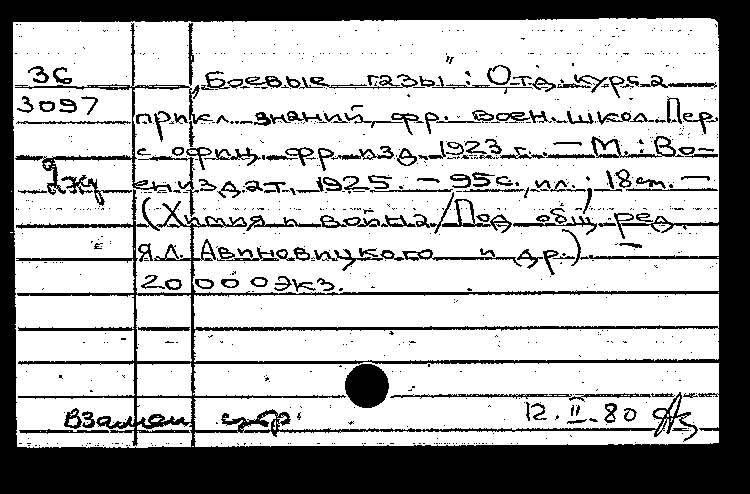 36
3097
„Боевые газы": Отд. курса
прикл. знаний, фр. воен. школ Пер.
с офиц. фр. изд. 1923 г. — М.: Во-
ениздат, 1925. — 95с., ил.; 18 см. —
(Химия и война/Под общ. ред.
Я.Л. Авиновицкого и др.). —
20000экз.
Взамен
12.II.80